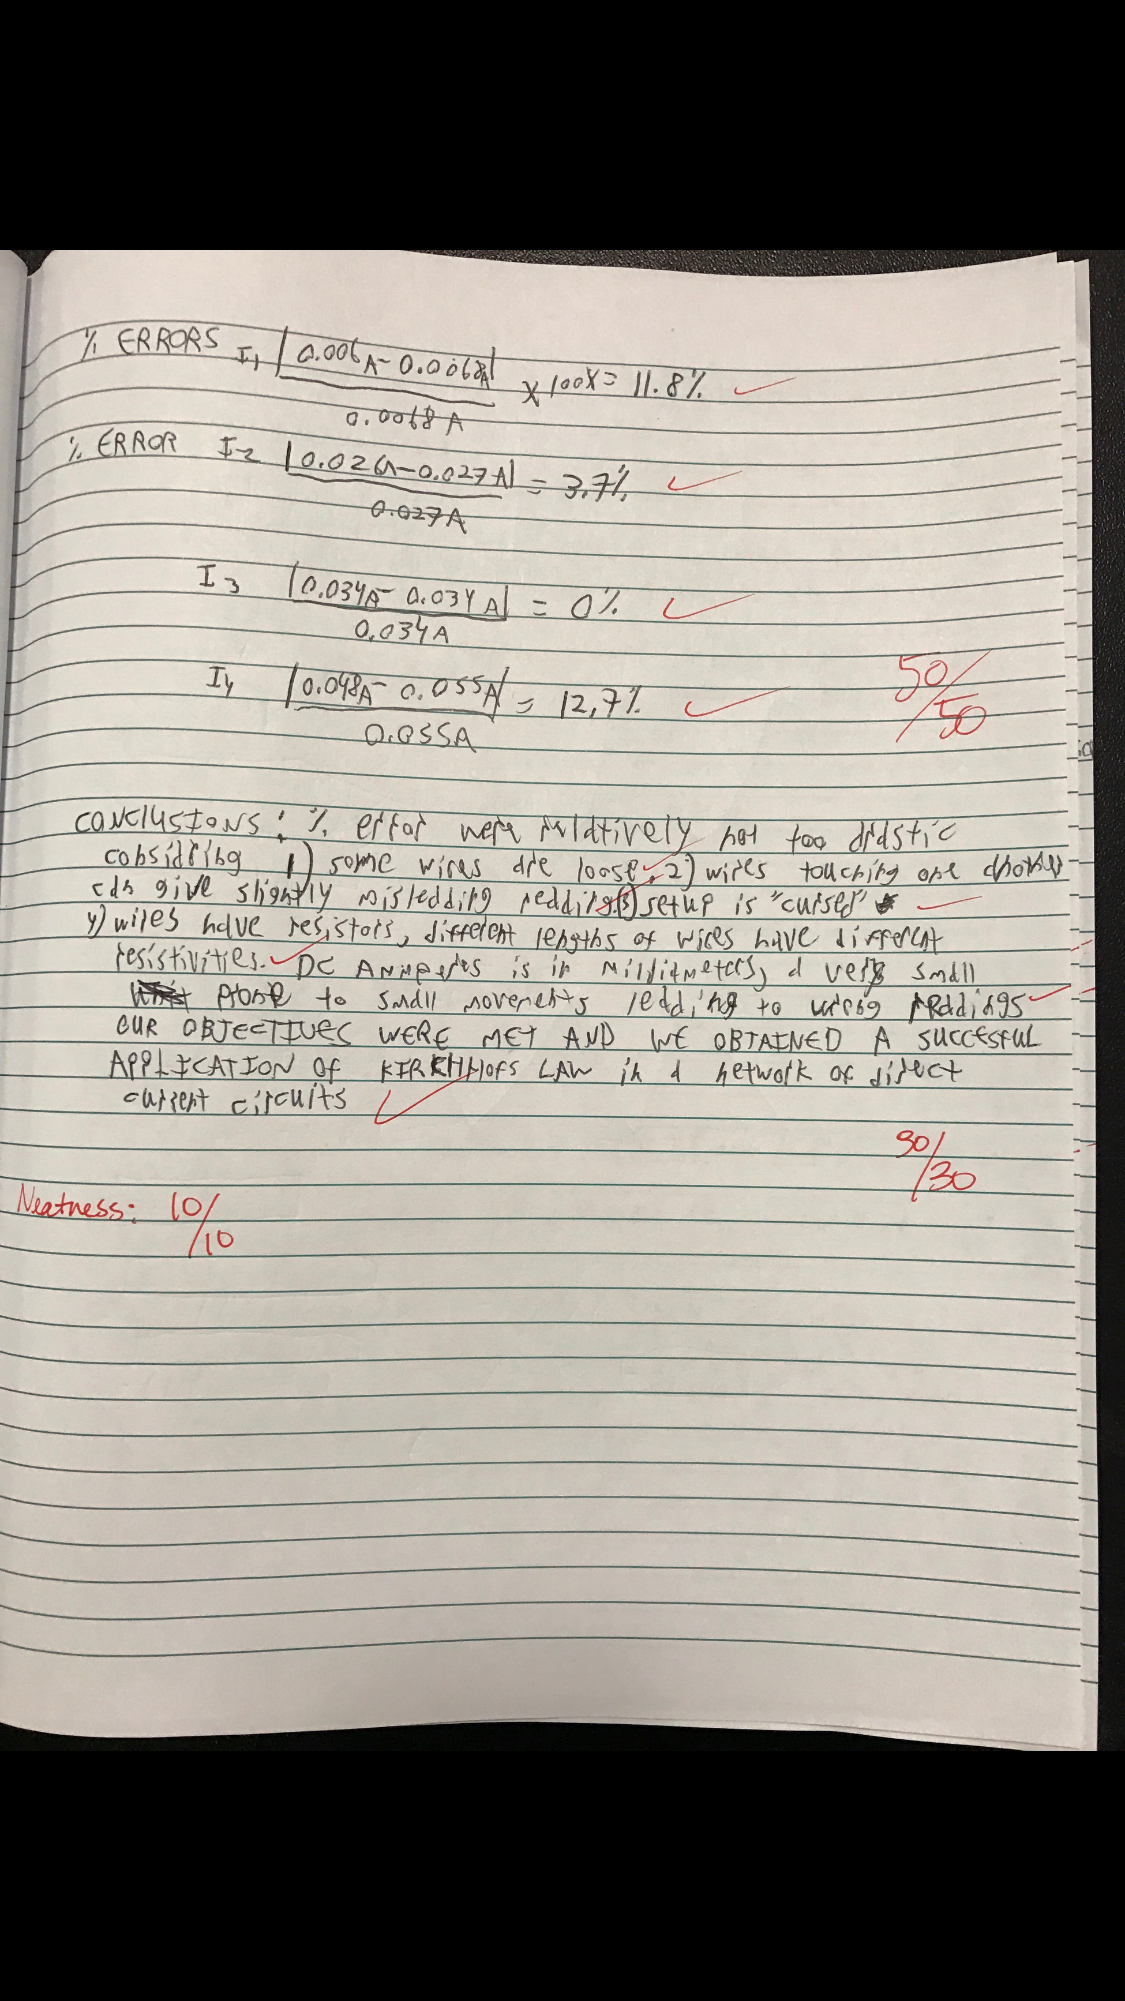 % ERRORS I1 |0.006A - 0.0068A| x 100% = 11.8%
0.0068 A
% ERROR I2 |0.026A - 0.027A| = 3.7%
0.027A
I3 |0.034A - 0.034A| = 0%
0.034A
50/50
I4 |0.048A - 0.055A| = 12,7%
0.055A
CONCLUSIONS: % error were relatively not too drastic
considring 1) some wires are loose. 2) wires touching one another
can give slightly misleading reading. 3) setup is "cursed"
4) wires have resistors, different lengths of wires have different
resistivities. DC Amperes is in
a very small
prone to small movements leading to wrong readings
OUR OBJECTIVES WERE MET AND WE OBTAINED A SUCCESFUL
APPLICATION OF LAW in a network of direct
current circuits
30/30
Neatness: 10/10